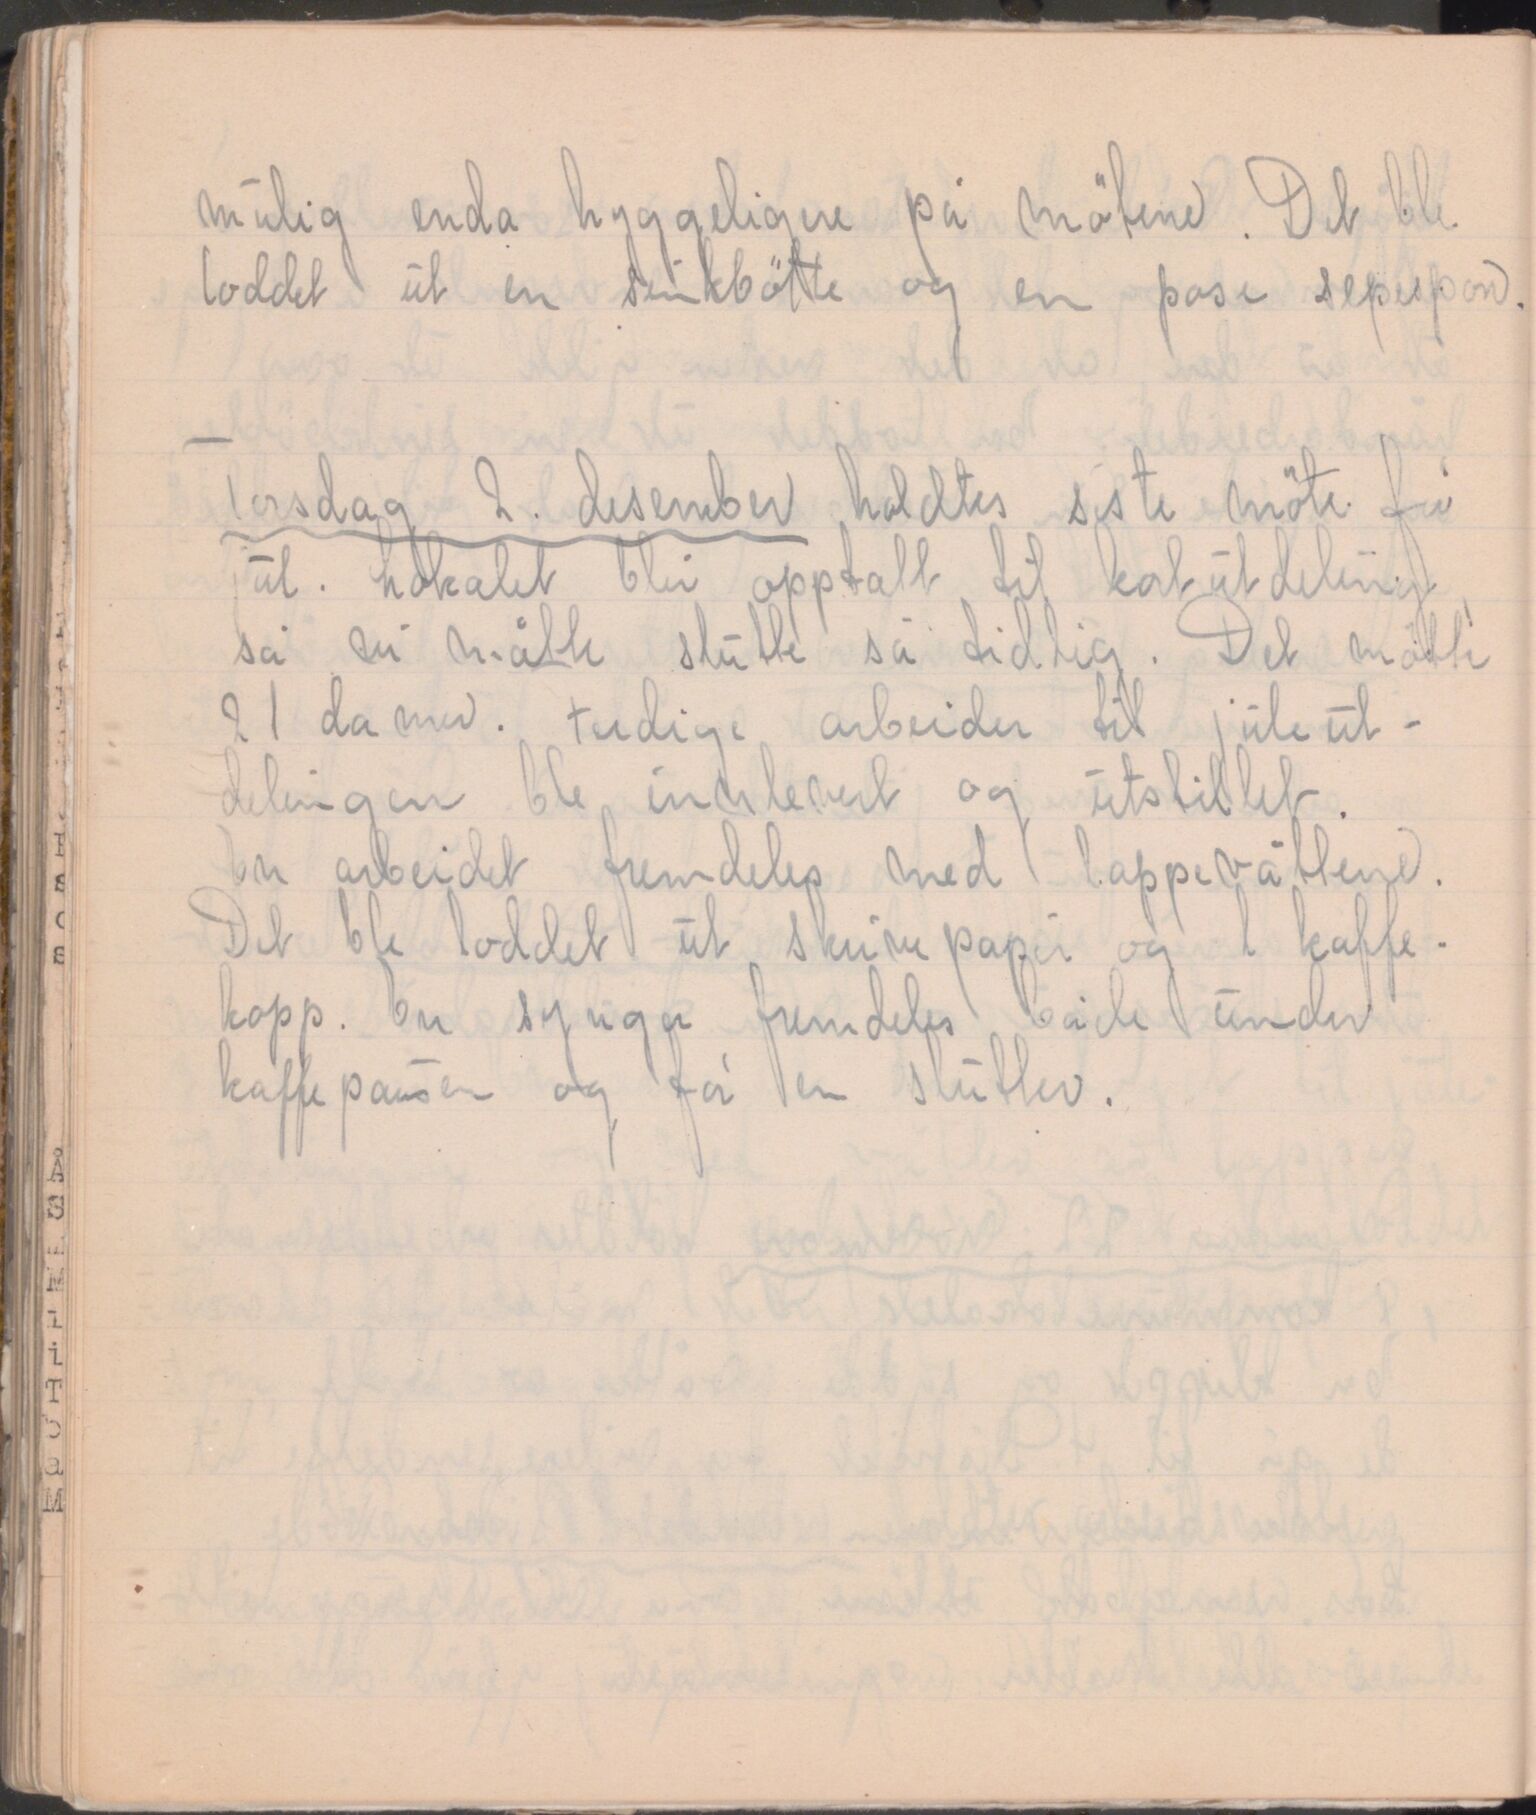 mulig enda hyggeligere på møtene. Det ble
loddet ut en sinkbøtte og en pose sepespon.
Torsdag 2. desember holdtes siste møte før
jul. Lokalet blir opptatt til kortutdeling
så vi måtte slutte så tidlig. Det møtte
21 damer. Ferdige arbeider til juleut-
delingen ble innlevert og utstillet.
En arbeidet fremdeles med lappevåttene.
Det ble loddet ut skrivepapir og 1 kaffe-
kopp. En synger fremdeles både under
kaffepausen og før en slutter.